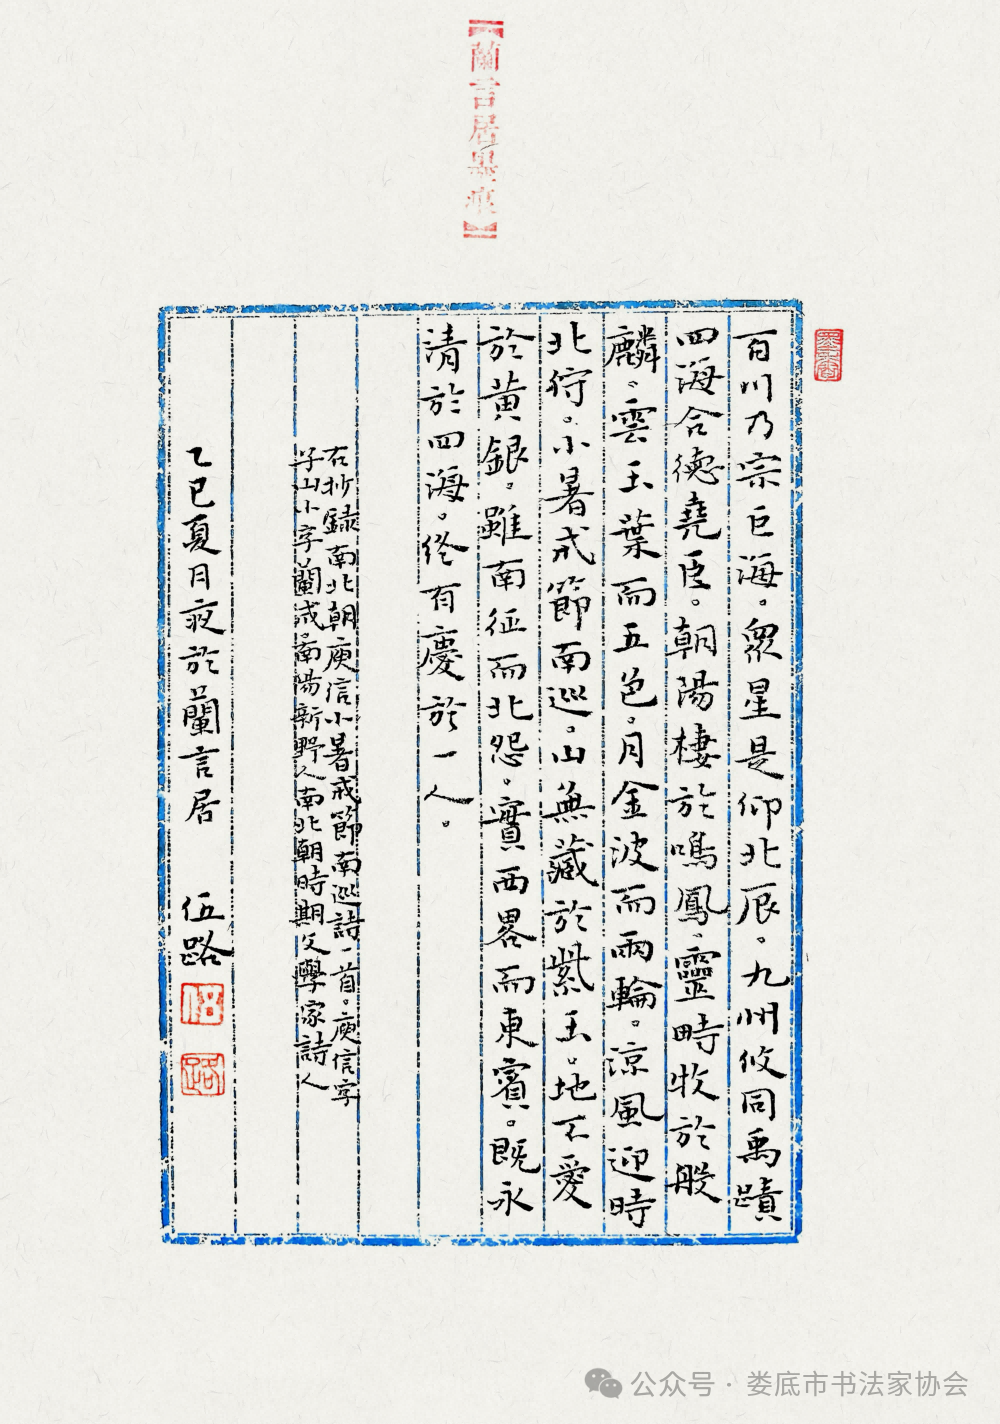 【蘭言居墨痕】
百川乃宗巨海。衆星是仰北辰。九州攸同禹蹟
四海合德堯臣。朝陽棲於鳴鳳。靈畤牧於般
麟。雲玉葉而五色。月金波而兩輪。涼風迎時
北狩。小暑戒節南巡。山無藏於紫玉。地不愛
於黃銀。雖南征而北怨。實西畧而東賓。既永
清於四海。終有慶於一人。
右抄録南北朝庾信小暑戒節南巡詩一首。庾信字
子山小字蘭成南陽新野人南北朝時期文學家詩人
乙巳夏月夜於蘭言居 伍路
伍
路
公众号 · 娄底市书法家协会